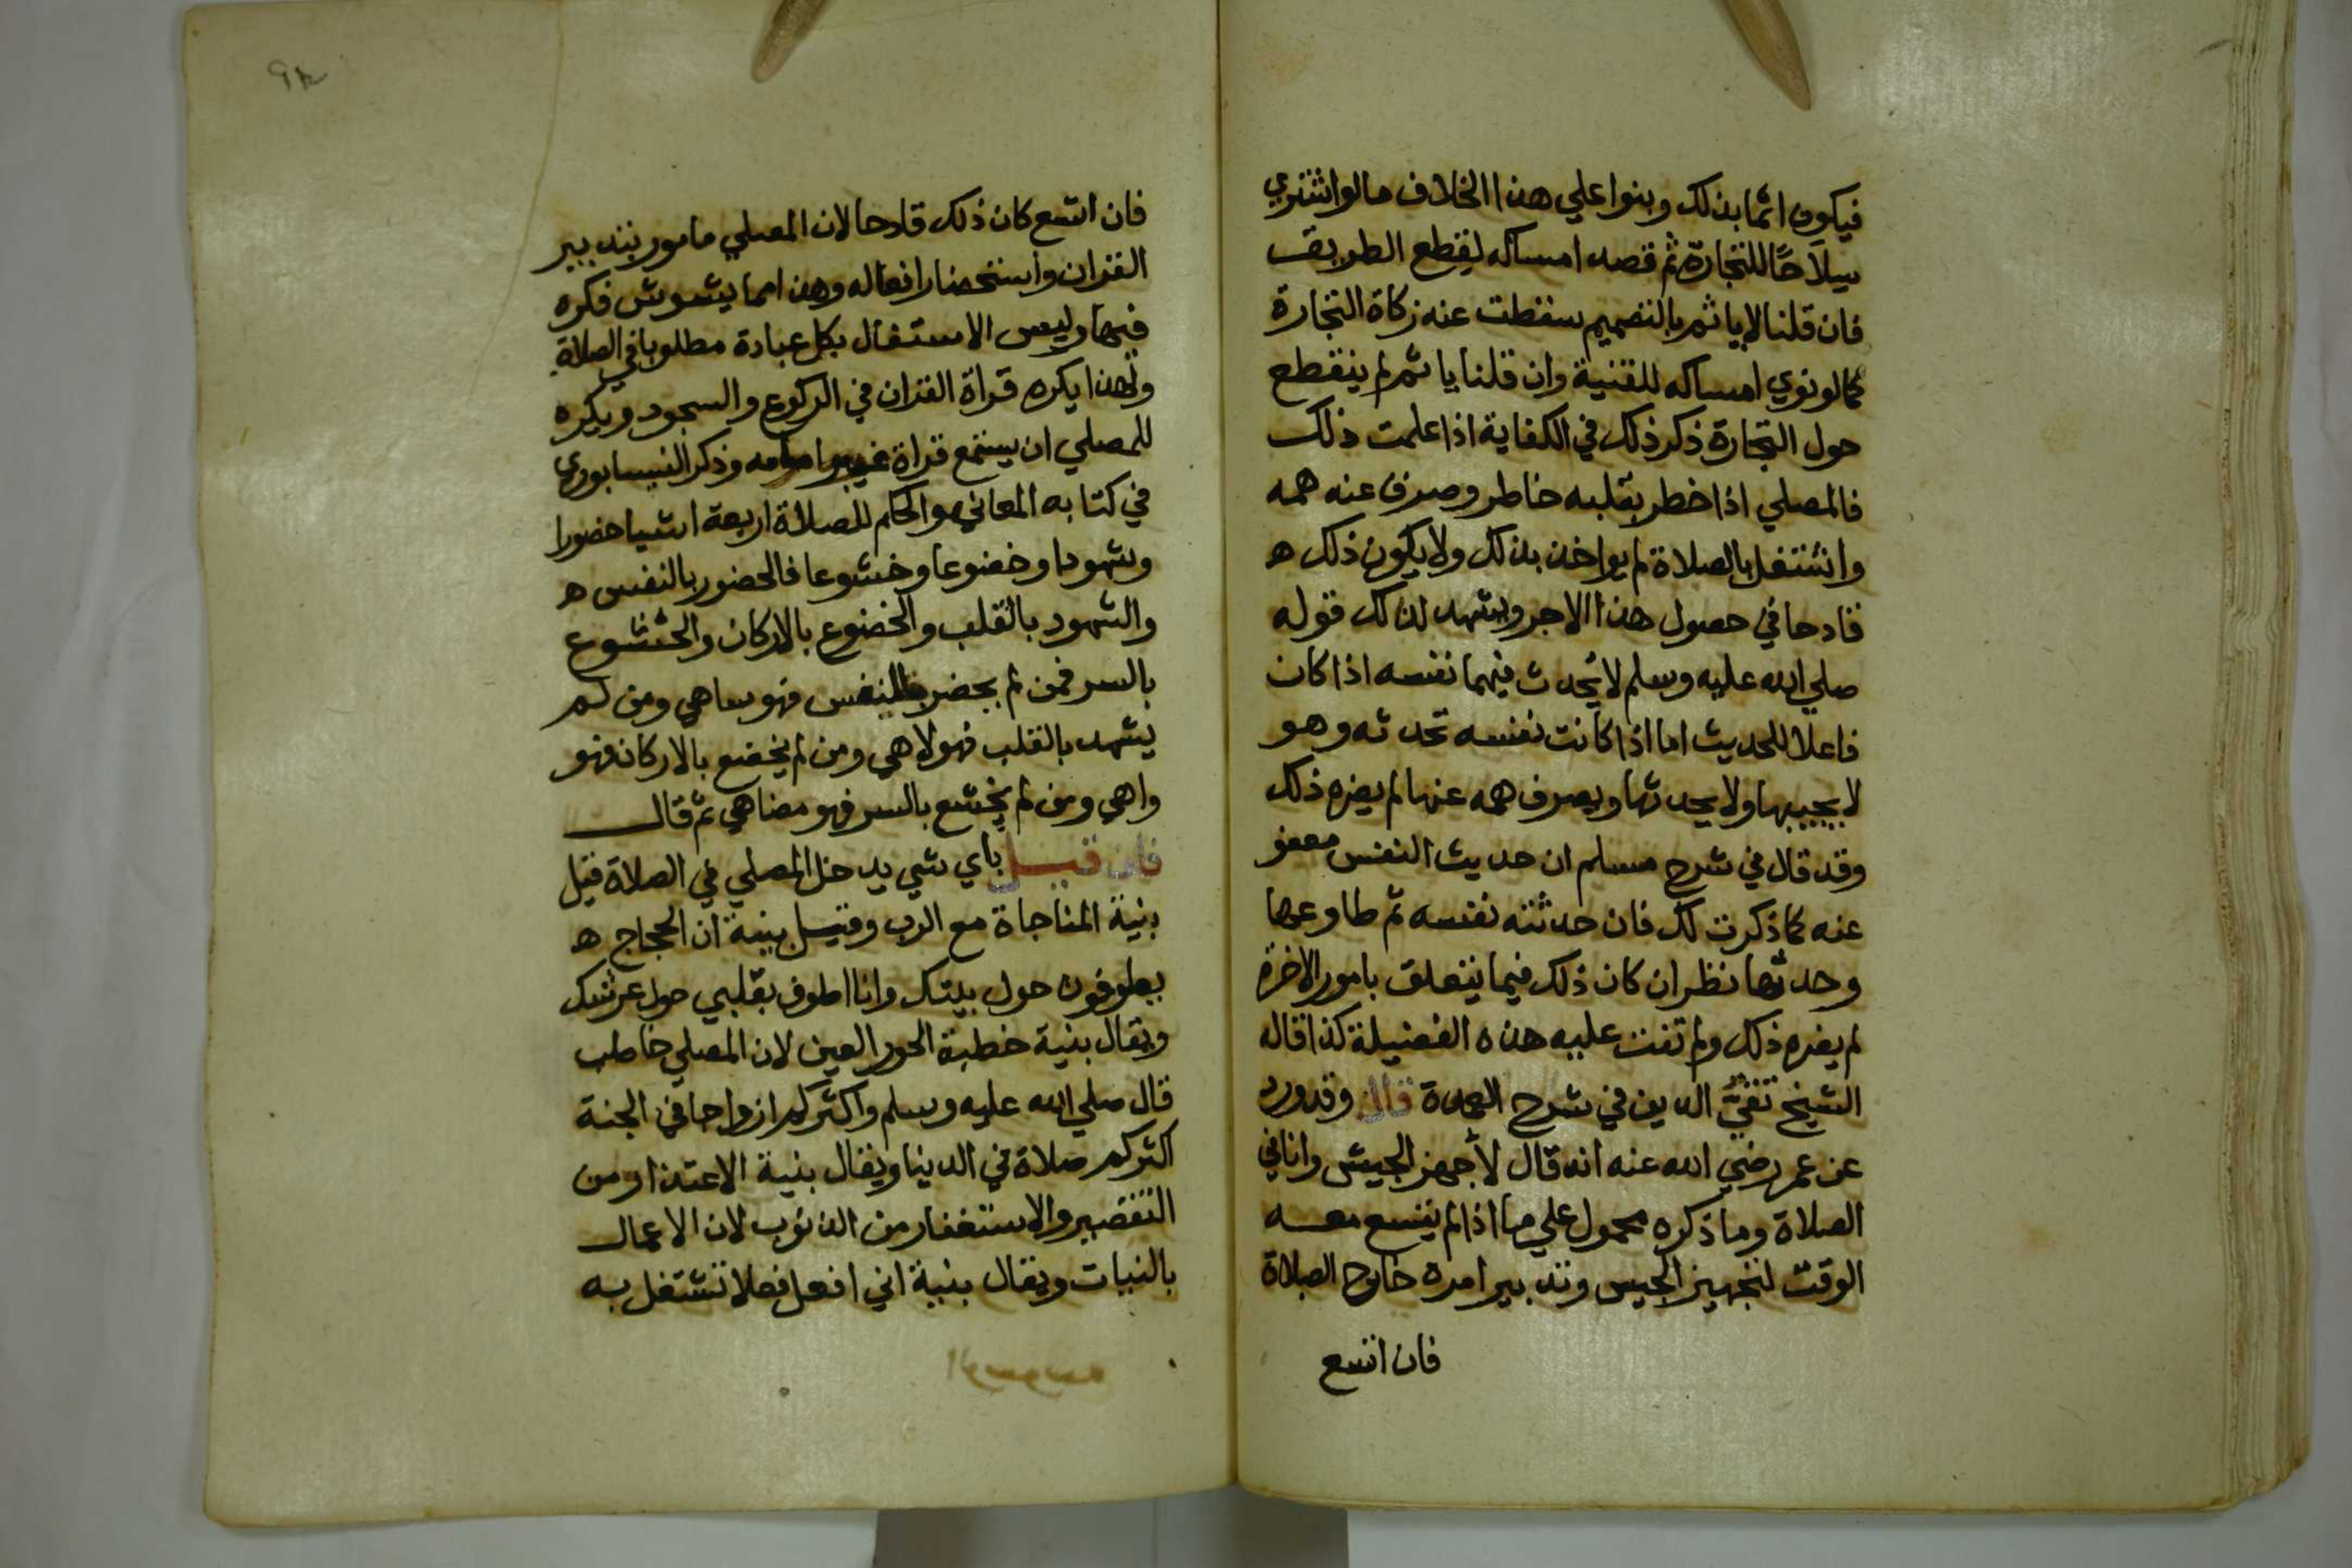 فيكون اثما بذلك وبنوا علي هذا الخلاف ما لو اشتري
سلاحًا للتجارة ثم قصد امساكه لقطع الطريق
فان قلنا لا ياثم بالتصميم سقطت عنه زكاة التجارة
كما لو نوي امساكه للقنية وان قلنا ياثم لم ينقطع
حول التجارة ذكر ذلك في الكفاية اذا علمت ذلك
فالمصلي اذا خطر بقلبه خاطر وصرف عنه همه
واشتغل بالصلاة لم يواخذ بذلك ولا يكون ذلك ه
قادحا في حصول هذا الاجر ويشهد لذلك قوله
صلي الله عليه وسلم لا يُحدث فيهما نفسه اذا كان
فاعلا للحديث اما اذا كانت نفسه تحدثه وهو
لا يجيبها ولا يحدثها ويصرف همه عنها لم يضره ذلك
وقد قال في شرح مسلم ان حديث النفس معفو
عنه كما ذكرت لك فان حدثته نفسه ثم طاوعها
وحدثها نظر ان كان ذلك فيما يتعلق بامور الاخرة
لم يضره ذلك ولم تفت عليه هذه الفضيلة كذا قاله
الشيخ تقيّ الدين في شرح العمدة قال وقد ورد
عن عمر رضي الله عنه انه قال لأجهز الجيش وانا في
الصلاة وما ذكره محمول علي ما اذا لم يتسع معه
الوقت لتجهيز الجيس وتدبير امره خارج الصلاة
فان اتسع
٩٨
فان اتسع كان ذلك قادحا لان المصلي مامور بتدبير
القران واستحضار افعاله وهذا مما يشوش فكره
فيها وليس الاستغال بكل عبادة مطلوبا في الصلاة
ولهذا يكره قراة القران في الركوع والسجود ويكره
للمصلي ان يستمع قراة غير امامه وذكر النيسابوري
في كتابه المعاني والحكم للصلاة اربعة اشيا حضورا
وشهودا وخضوعا وخشوعا فالحضور بالنفس ه
والشهود بالقلب والخضوع بالاركان والخشوع
بالسر فمن لم يحضر بالنفس فهو ساهي ومن لم
يشهد بالقلب فهو لاهي ومن لم يخضع بالاركان فهو
واهي ومن لم يخشع بالسر فهو مضاهي ثم قال
فان قيل باي شي يدخل المصلي في الصلاة قيل
بنية المناجاة مع الرب وقيل بنية ان الحجاج ه
يطوفون حول بيتك وانا اطوف بقلبي حول عرشك
ويقال بنية خطبة الحور العين لان المصلي خاطب
قال صلي الله عليه وسلم واكثركم ازواجا في الجنة
اكثركم صلاة في الدينا ويقال بنية الاعتذار من
التقصير والاستغفار من الذنوب لان الاعمال
بالنيات ويقال بنية اني افعل فعلا تشتغل به
الوسوسه